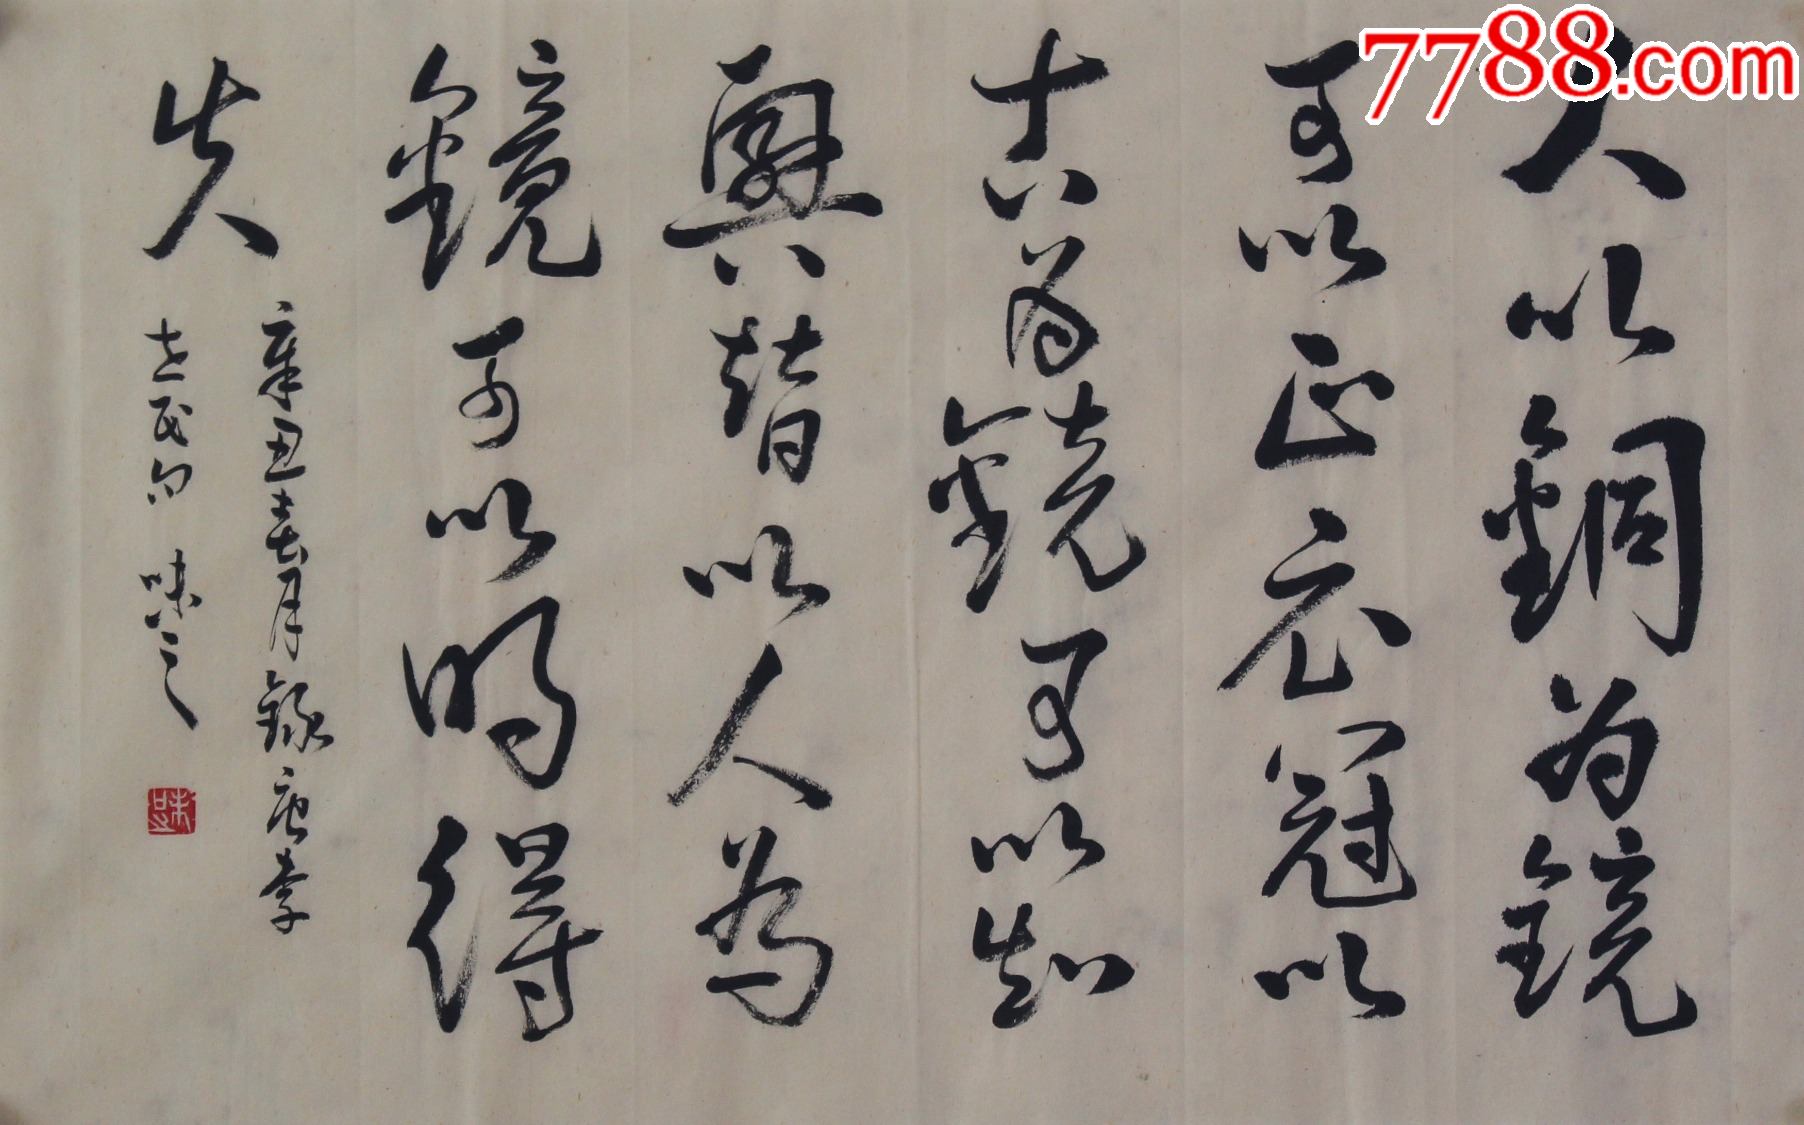 7788.com
人以銅为鏡
可以正衣冠以
古为鏡可以知
興替以人为
鏡可以明得
失
辛丑春月錄唐李
世民句 味之
味之